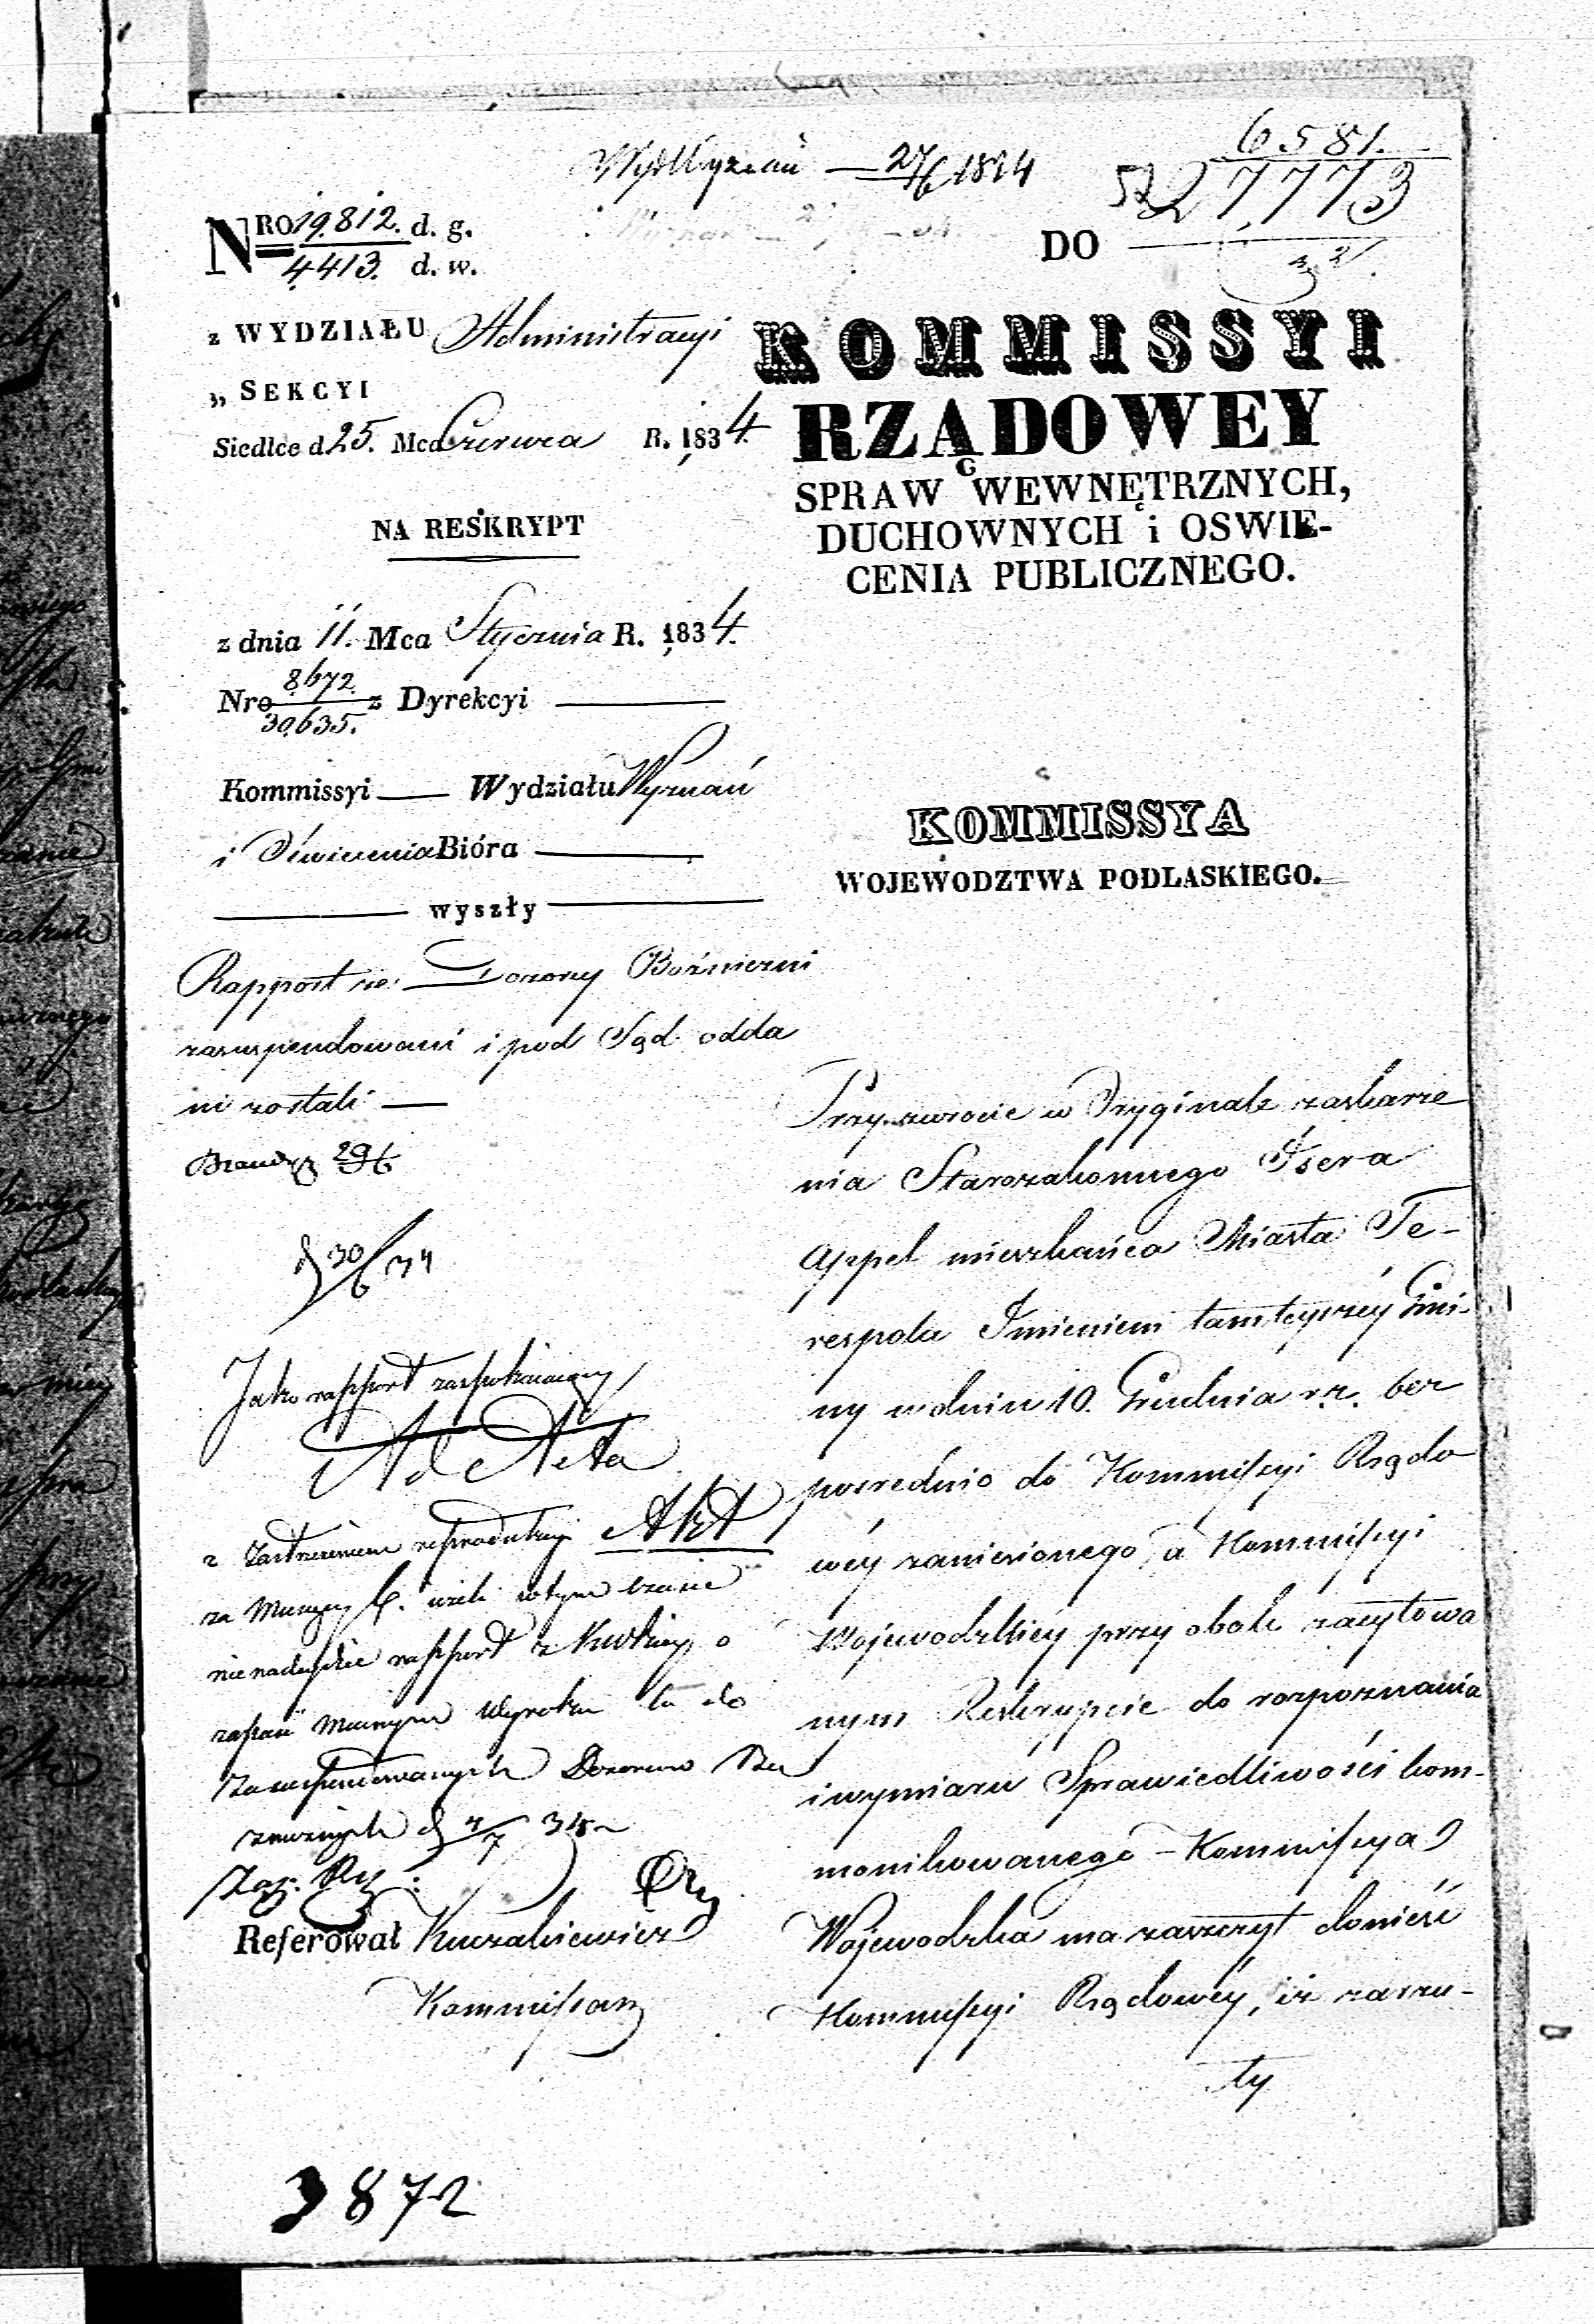 Wyd Wyznań — 27/6 1834
6581.
27,773
NRO 19.812. d. g.
4413. d. w.
DO
z WYDZIAŁU Administracyi
„ SEKCYI
Siedlce d 25. Mca Czerwca R. 1834.
KOMMISSYI
RZĄDOWEY
SPRAW WEWNĘTRZNYCH,
DUCHOWNYCH i OSWIE-
CENIA PUBLICZNEGO.
NA RESKRYPT
z dnia 11. Mca Stycznia R. 1834.
Nro 8672. z Dyrekcyi
30,635.
Kommissyi — Wydziału Wyznań
i Oświecenia Bióra
wyszły
KOMMISSYA
WOJEWODZTWA PODLASKIEGO.
Rapport że Dozory Bóżniczni
zasuspendowani i pod Sąd odda
ni zostali —
29/6
30/6 34
Jako rapport zaspokaiaiący
Ad Acta
z zastrzeżeniem reprodukcyi Akt
za Miesięcy 6. jeżeli w tym czasie
nie nadeydzie rapport z
zapaść Wyroku co do
zasuspendowanych Dozorców Bóż
niczych d 4/7 34
Referował Kuczakiewicz
Kommissarz
Przy zwrocie w Oryginale zaskarże
nia Starozakonnego Isera
Appel mieszkańca Miasta Te-
respola Imieniem tamteyszéy Gmi-
ny w dniu 10. Grudnia r. z. bez
pośrednio do Kommissyi Rządo
wéy zaniesionego, a Kommissyi
Wojewodzkiéy przy obok zacytowa
nym Reskrypcie do rozpoznania
i wymiaru Sprawiedliwości kom-
monikowanego – Kommissya
Wojewodzka ma zaszczyt donieść
Kommissyi Rządowéy, iż zarzu-
ty
3872